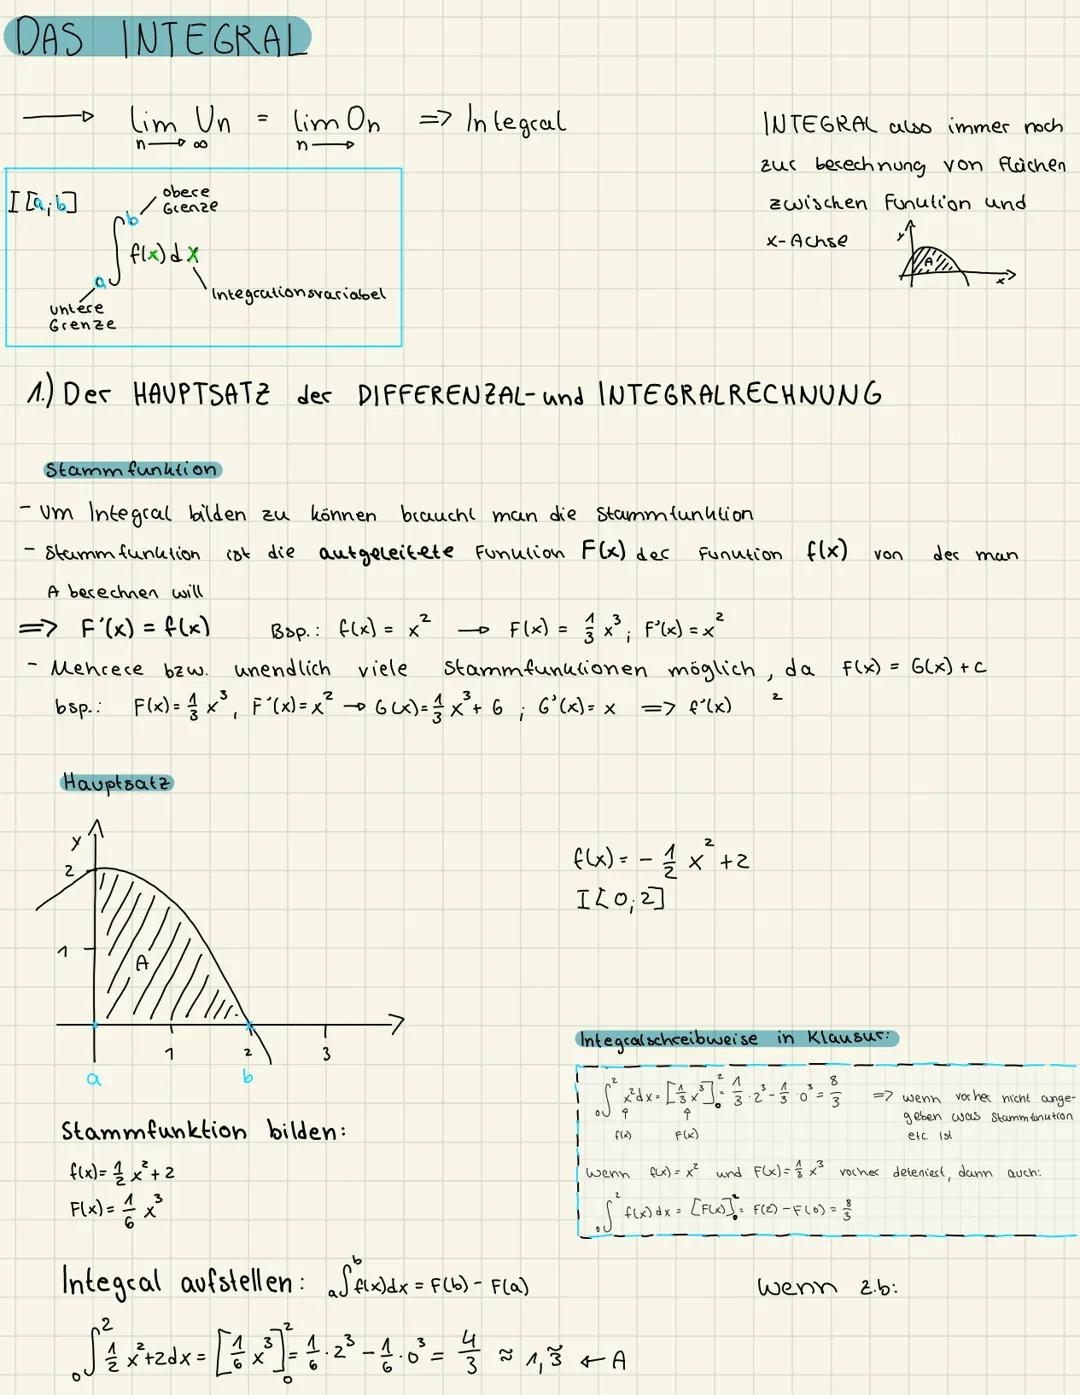 DAS INTEGRAL
lim Un = lim On => Integral
n→∞ n→
INTEGRAL also immer noch
zur berechnung von Flächen
zwischen Funution und
x-Achse
y
A
x
I[a;b]
obere
Grenze
b
∫ f(x)dx
a
untere
Grenze
Integrationsvariabel
1.) Der HAUPTSATZ der DIFFERENZAL- und INTEGRALRECHNUNG
Stammfunktion
- Um Integral bilden zu können braucht man die Stammfunktion
- Stammfunktion ist die aufgeleitete Funution F(x) der Funution f(x) von der man
A berechnen will
=> F'(x) = f(x) Bsp.: f(x) = x² → F(x) = 1/3 x³ ; F'(x) = x²
- Mehrere bzw. unendlich viele Stammfunktionen möglich, da F(x) = G(x) + C
bsp.: F(x) = 1/3 x³, F'(x) = x² → G(x) = 1/3 x³ + 6 ; G'(x) = x => f'(x) 2
Hauptsatz
y
2
1
A
1 2 3
a b
f(x) = - 1/2 x² + 2
I[0;2]
Stammfunktion bilden:
f(x) = 1/2 x² + 2
F(x) = 1/6 x³
Integralschreibweise in Klausur:
₀∫² x² dx = [1/3 x³]₀² = 1/3 · 2³ - 1/3 · 0³ = 8/3 => wenn vorher nicht ange-
geben was Stammfunution
f(x) F(x) etc ist
wenn f(x) = x² und F(x) = 1/3 x³ vorher definiert, dann auch:
₀∫² f(x) dx = [F(x)]₀² = F(2) - F(0) = 8/3
Integral aufstellen: ₐ∫ᵇ f(x)dx = F(b) - F(a)
wenn z.b:
₀∫² 1/2 x² + 2 dx = [1/6 x³]₀² = 1/6 · 2³ - 1/6 · 0³ = 4/3 ≈ 1,3 ← A